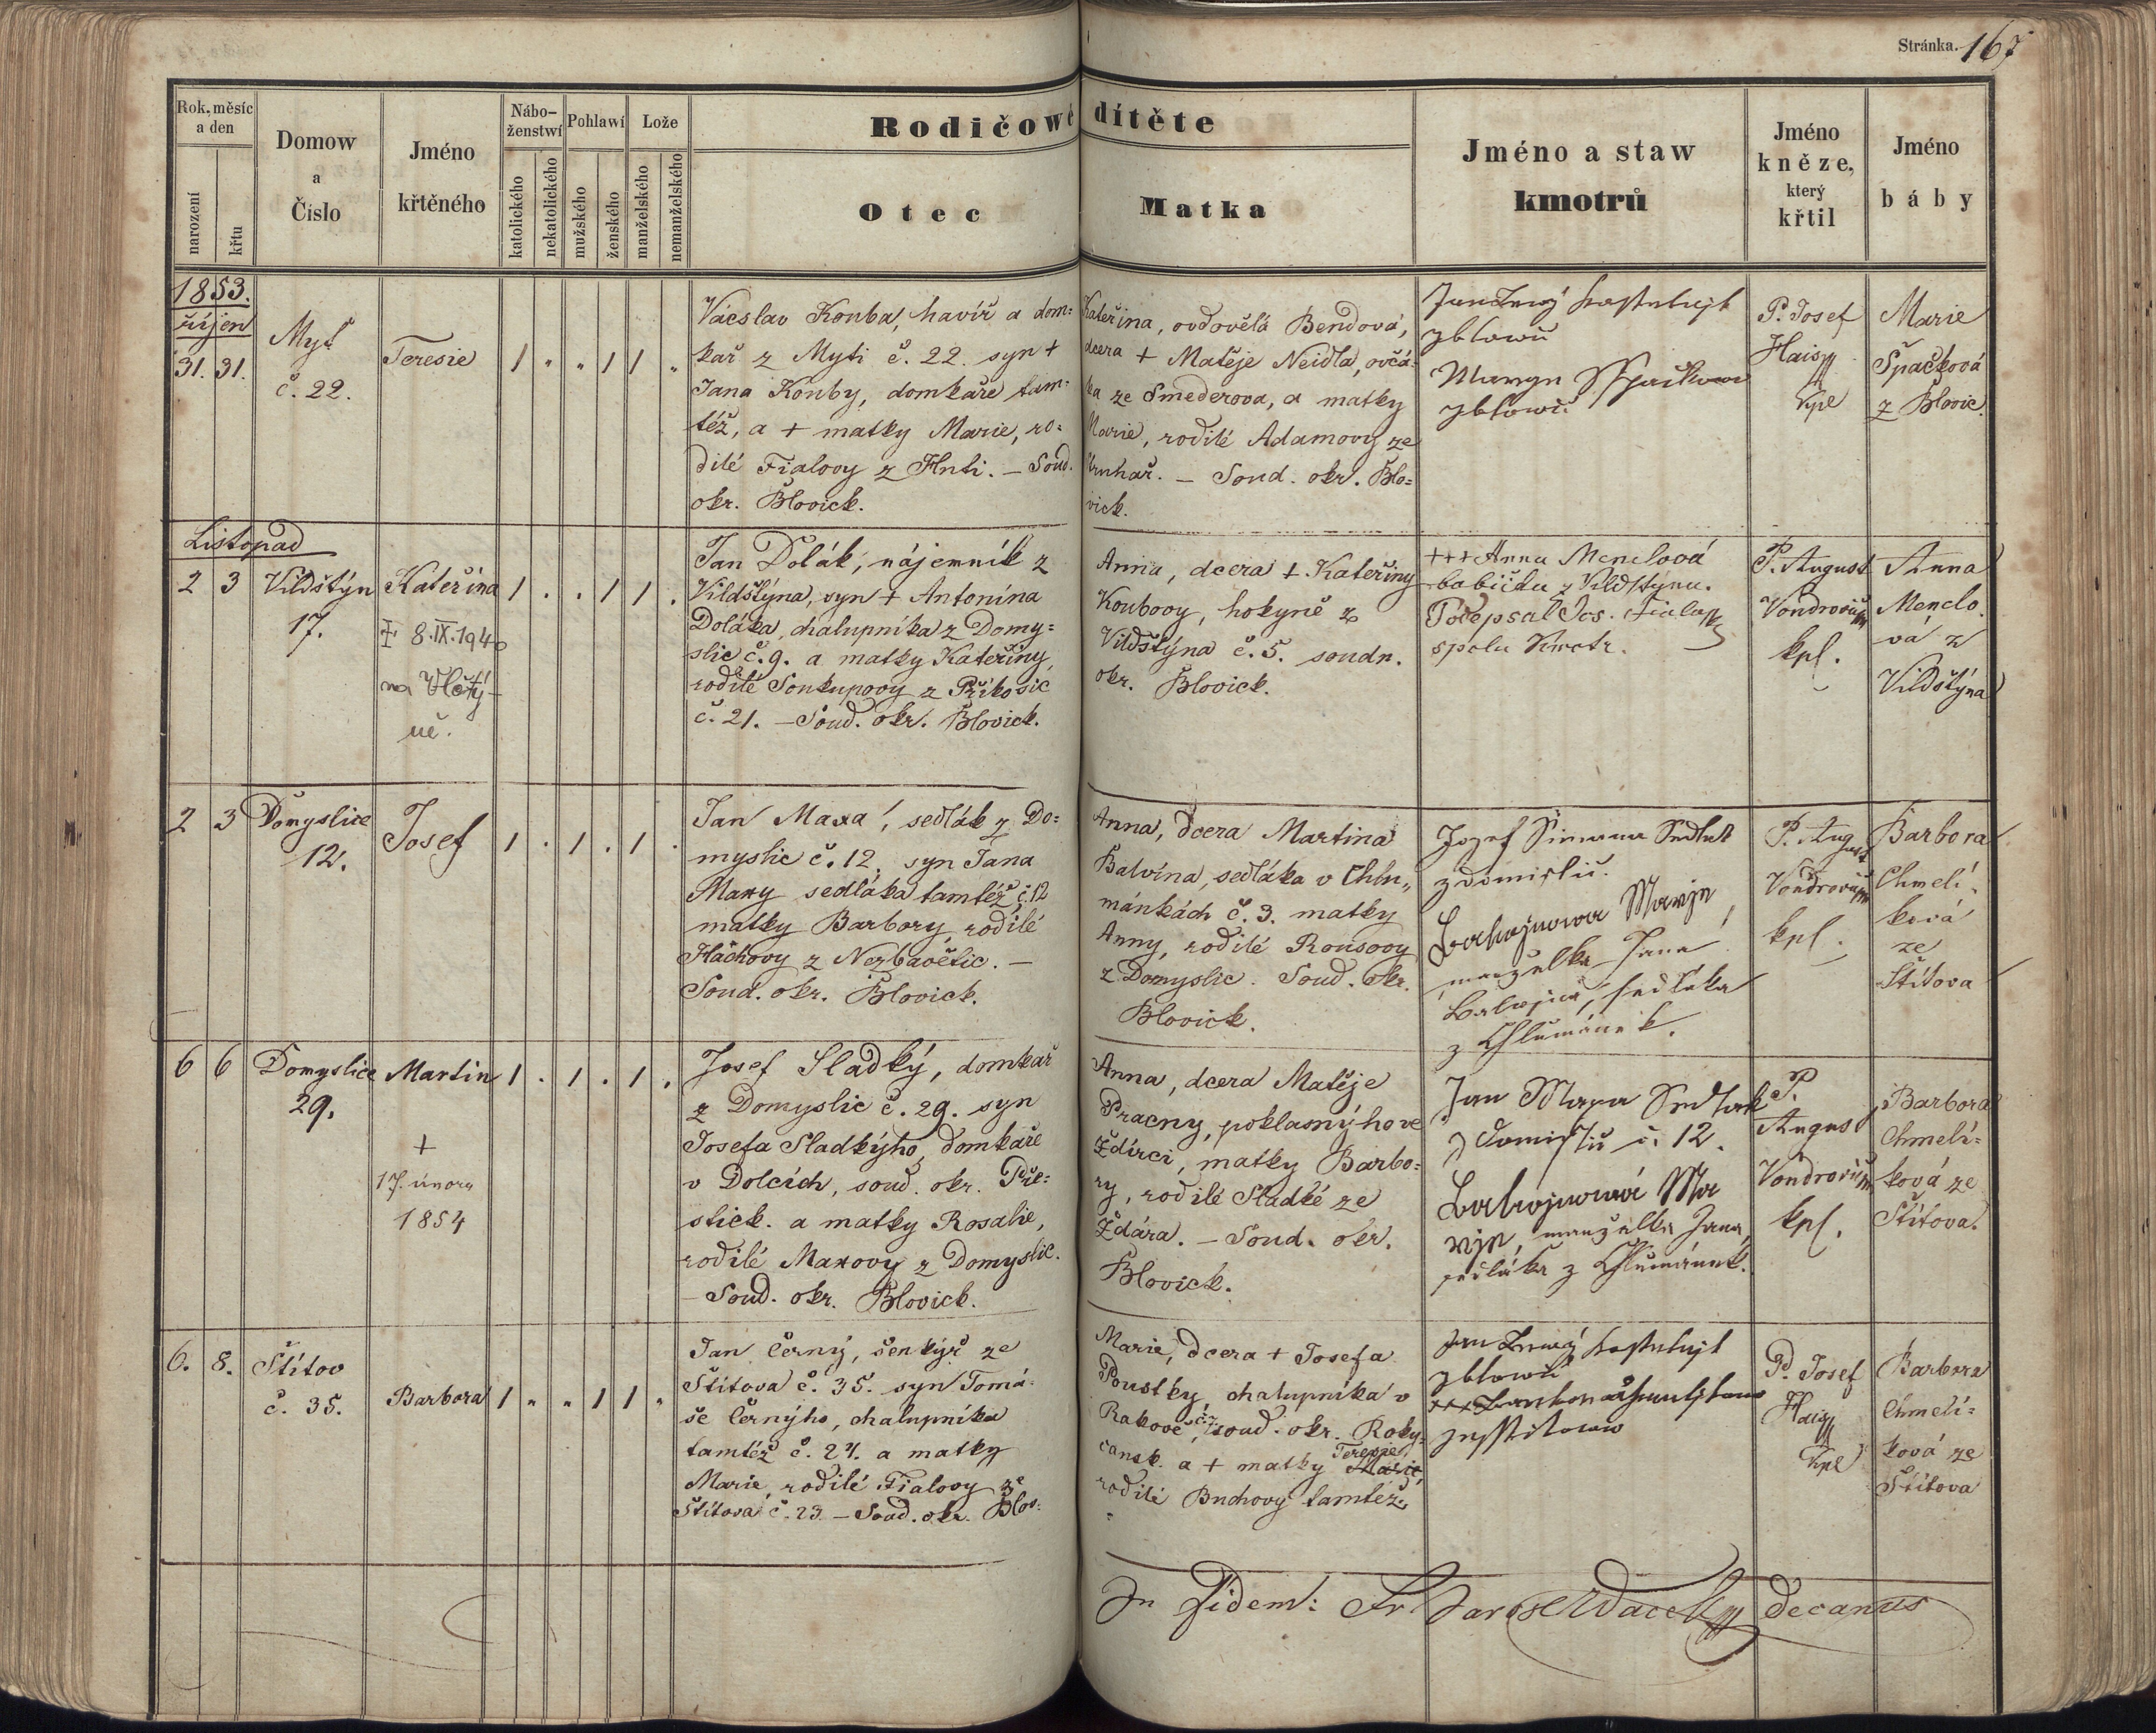 Stránka. 167
Rok, měsíc
a den
narození
křtu
Domow
a
Číslo
Jméno
křtěného
Nábo-
ženstwí
katolického
nekatolického
Pohlawí
mužského
ženského
Lože
manželského
nemanželského
Rodičowé dítěte
Otec
Matka
Jméno a staw
kmotrů
Jméno
kněze,
který
křtil
Jméno
báby
1853.
říjen
31. 31.
Myť
č. 22.
Teresie
1 " " 1 1 "
Vácslav Kouba, havíř a dom=
kař z Myti č. 22. syn +
Jana Kouby, domkáře tam=
též, a + matky Marie, ro=
dilé Fialovy z Huti. – Soud.
okr. Blovick.
Kateřina, ovdovělá Bendová,
dcera + Matěje Neidla, ovčá=
ka ze Smederova, a matky
Marie, rodilé Adamovy ze
– Soud. okr. Blo=
vick.
Jan
z Blowic
Marya Sspačkowa
z Blowic
P. Josef
Hais
kpl
Marie
Špačková
z Blovic.
Listopad
2 3
Vildštýn
17.
Kateřina
8.IX.1940
na Vlčtý-
ně.
1 . . 1 1 .
Jan Dolák, nájemník z
Vildštýna, syn + Antonína
Doláka, chalupníka z Domy=
slic č. 9. a matky Kateřiny,
rodilé Soukupovy z Příkosic
č. 21. – Soud. okr. Blovick.
Anna, dcera + Kateřiny
Koubovy, hokyně z
Vildštýna č. 5. soudn.
okr. Blovick.
+++ Anna Menclová
babička z Vildštýna.
Podepsal Jos. Fiala
spolu Kmotr.
P. August
Vondrovič
kpl.
Anna
Menclo.
vá z
Vildštýna
2 3
Domyslice
12.
Josef
1 . 1 . 1 .
Jan Maxa, sedlák z Do=
myslic č. 12, syn Jana
Maxy sedláka tamtéž č. 12
matky Barbory, rodilé
Háchovy z Nezbavětic. –
Soud. okr. Blovick.
Anna, dcera Martina
Balvína, sedláka v Chlu„
mánkách č. 3. matky
Anny, rodilé Rousovy
z Domyslic. Soud. okr.
Blovick.
Jozef Simana Sedlak
z Domislic.
Marije
manželka Jana
sedláka
z Chlumánek.
P. August
Vondrovič
kpl.
Barbora
Chmelí-
ková
ze
Štítova
6 6
Domyslice
29.
Martin
+
17. února
1854
1 . 1 . 1 .
Josef Sladký, domkař
z Domyslic č. 29. syn
Josefa Sladkýho, domkáře
v Dolcích, soud. okr. Pře=
stick. a matky Rosalie,
rodilé Maxovy z Domyslic.
– Soud. okr. Blovick.
Anna, dcera Matěje
Pracny, poklasnýho ve
Ždírci, matky Barbo=
ry, rodilé Sladké ze
Ždára. – Soud. okr.
Blovick.
Jan Maxa Sedlak
z Domislic č. 12.
Ma
rije, manželka Jana,
sedláka z Chlumánek.
P.
August
Vondrovič
kpl.
Barbora
Chmelí=
ková ze
Štítova.
6. 8.
Štítov
č. 35.
Barbora
1 " " 1 1 "
Jan Černý, šenkýř ze
Štítova č. 35. syn Tomá=
še Černýho, chalupníka
tamtéž č. 24. a matky
Marie, rodilé Fialovy ze
Štítova č. 23. – Soud. okr. Blov=
Marie, dcera + Josefa
Poustky, chalupníka v
Rakové, soud. okr. Roky-
cansk. a + matky Teresie,
rodilé Buchovy tamtéž.
Jan
z Blowic
+++
ze Sstitowa
P. Josef
Hais
kpl
Barbora
Chmelí=
ková ze
Štítova
In Fidem: Fr. decanus